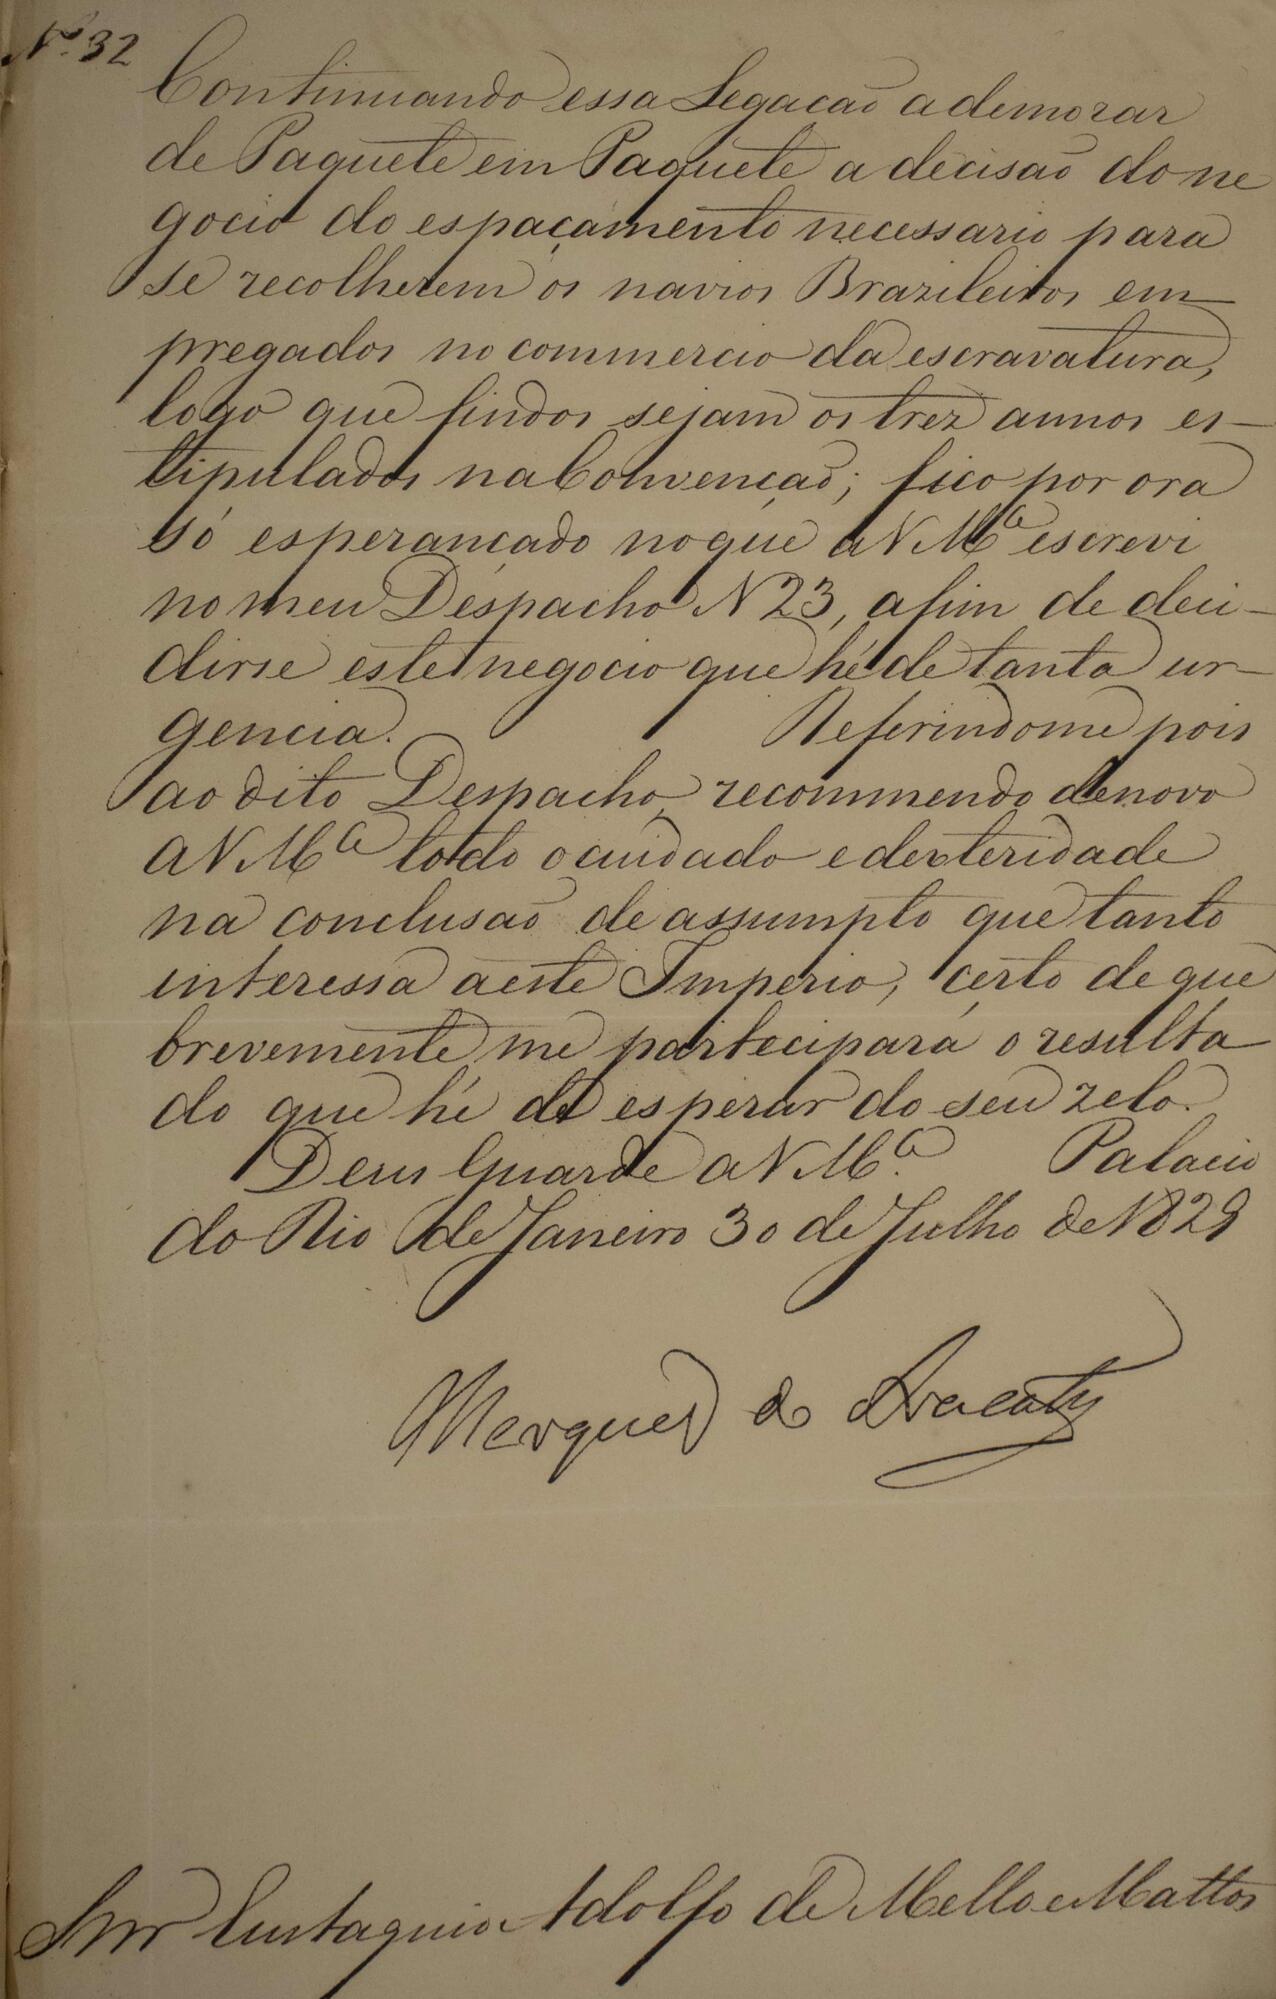 Nº 32
Continuando essa Legacaõ a demorar
de Paquete em Paquete a decisaõ do ne
gocio do espaçamento necessario para
se recolherem os navios Brazileiros em-
pregados no commercio da escravatura,
logo que findos sejam os trez annos es-
tipulados na Convençaõ; fico por ora
só esperançado no que a V Mce escrevi
no meu Despacho N 23, afim de deci-
dirse este negocio que hé de tanta ur-
gencia. Referindome pois
ao dito Despacho, recommendo de novo
a V Mce todo o cuidado e dexteridade
na conclusaõ de assumpto que tanto
interessa a este Imperio, certo de que
brevemente me participará o resulta
do que hé de esperar do seu zelo.
Deus Guarde a V Mce. Palacio
do Rio de Janeiro 30 de Julho de 1829
Marquez de Aracaty
Snr Eustaquio Adolfo de Mello e Mattos